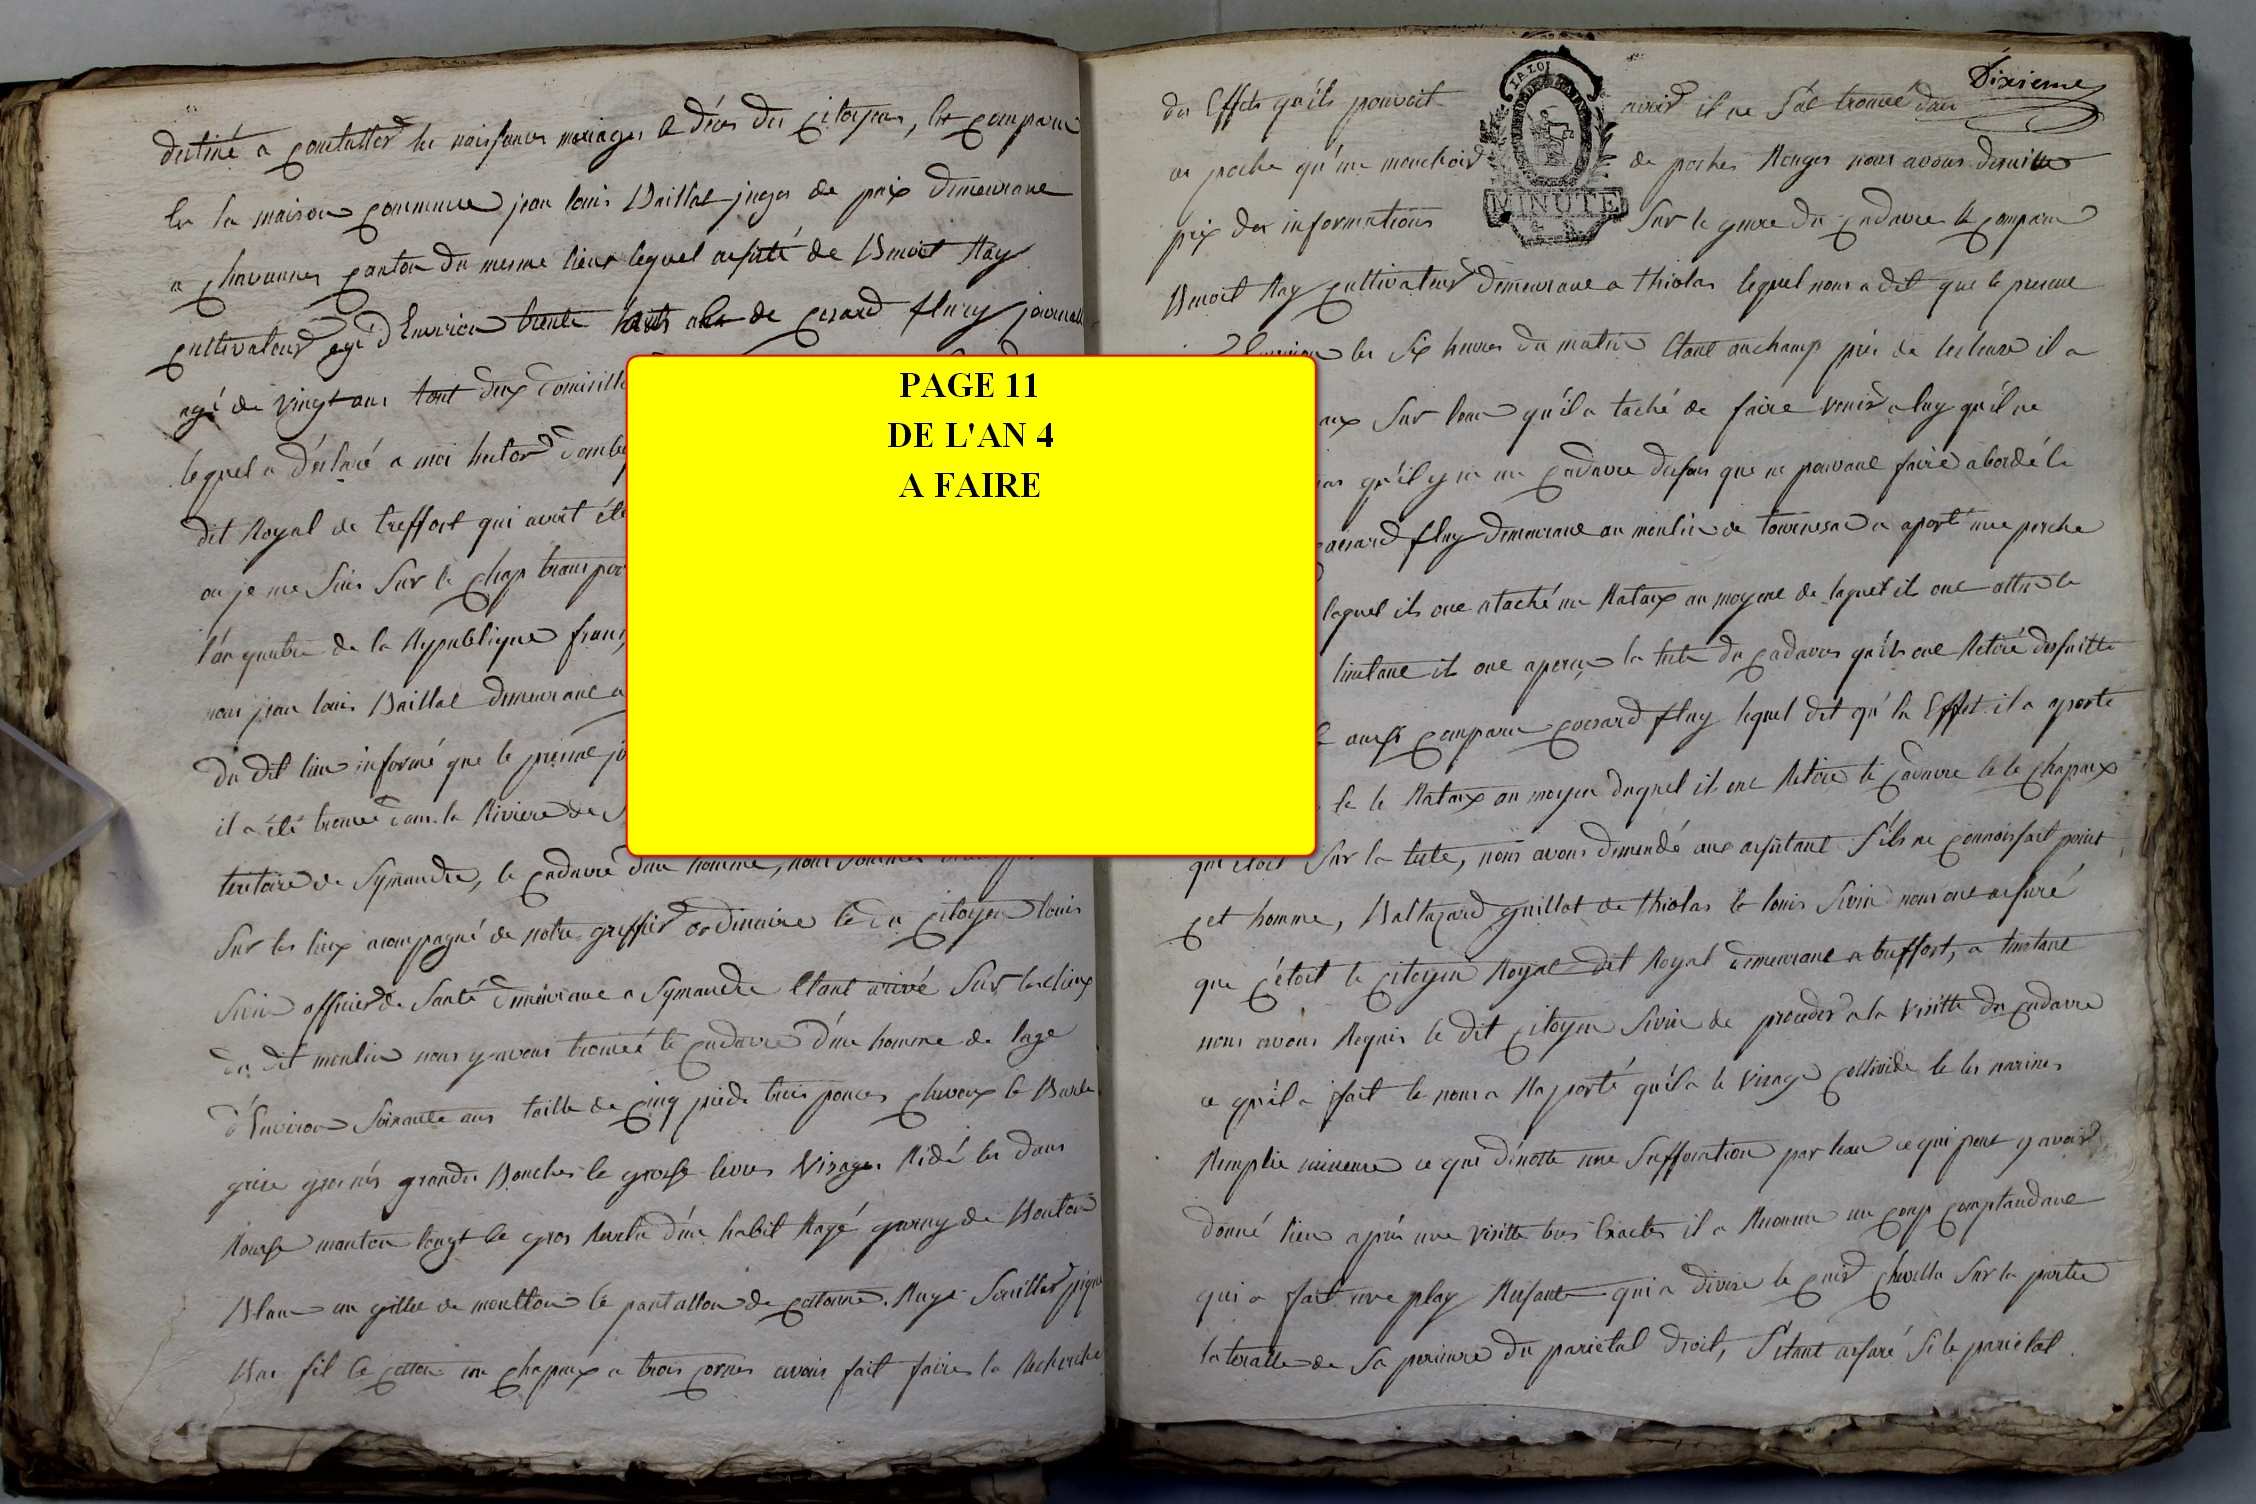 destiné a constatter les naissances mariages & décès des citoyens, est comparu
en la maison commune jean louis Baillat juges de paix demeurant
a chavannes canton du mesme lieux lequel assisté de Benoit Ray
cultivateur agé d'Environ trente huits ans de cesard fleury journall
agé de vingt ans tout deux domicilli
lequel a déclaré a moi hector
dit Royal de treffort qui avoit été
ou je me suis sur le chap transpor
l'an quatre de la Republique fran
nous jean louis Baillat demeurant a
du dit lieu informé que le presant jo
il a été trouvé dans la Riviere de S
teritoire de Symandre, le cadavre d'un homme, nous sommes
sur les lieux acompagné de notre greffier ordinaire & du citoyen louis
Sivin officier de Santé demeurant a Symandre Etant arivé Sur les lieux
du dit moulin nous y avons trouvé le cadavre d'un homme de lage
d'Environ Soixante ans taille de cinq pieds trois pouces cheveux & Barbe
grise gros nés grandes Bouches & grosse levres Visages Ridé les dans
Rousse manton longt & gros Revetu d'un habit Rayé garny de Bouton
Blanc un gillet de moulton & pantallon de cottonne. Ruge Soulliers
Bas fil & cotton un chapaux a trois cornes avons fait faire la Recherche
Dixieme
LA LOI
MINUTE
des Effets qu'ils pouvoit avoir il ne s'est trouvé dans
ces poche qu'un mouchoir de poches Rouges nous avons densuitte
pris des informations Sur le genre du cadavre & comparu
Benoit Ray cultivateur demeurant a thiolas lequel nous a dit que le presant
les Six heures du matin Etant au champ près de lecluse il a
aux Sur leau qu'il a taché de faire venir a luy qu'il ne
pas qu'il y ut un cadavre dessous que ne pouvant faire abordé le
cesard fleury demeurant au moulin de tournesac a aporté une perche
laquel ils ont ataché un Rataux au moyent de laquel ils ont attiré le
linstant ils ont aperçu la tete du cadavres qu'ils ont Retiré dessuitte
aussy comparu cesard fleury lequel dit qu'en Effet il a aporté
& le Rataux au moyen duquel ils ont Retiré le cadavre & le chapaux
qui étoit Sur la tete, nous avons demendé aux assistant S'ils ne connoissoit point
cet homme, Baltazard guillot de thiolas & louis Sivin nous ont assuré
que c'étoit le citoyen Royat dit Royal demeurant a treffort, a linstant
nous avons Requis le dit citoyen Sivin de proceder a la Visitte du cadavre
ce qu'il a fait & nous a Raporté qu'il a le Visage & les narines
Remplie ce qui dénotte une Suffocation par leau ce qui peut y avoir
donné lieu après une visitte très Exacte il a Reconnu un coup comptandant
qui a fait une play Reisante qui a divisé le cuir chevellu Sur la partie
lateralle de Sa perieure du parietal droit, S'étant assuré Si le parietal
PAGE 11
DE L'AN 4
A FAIRE